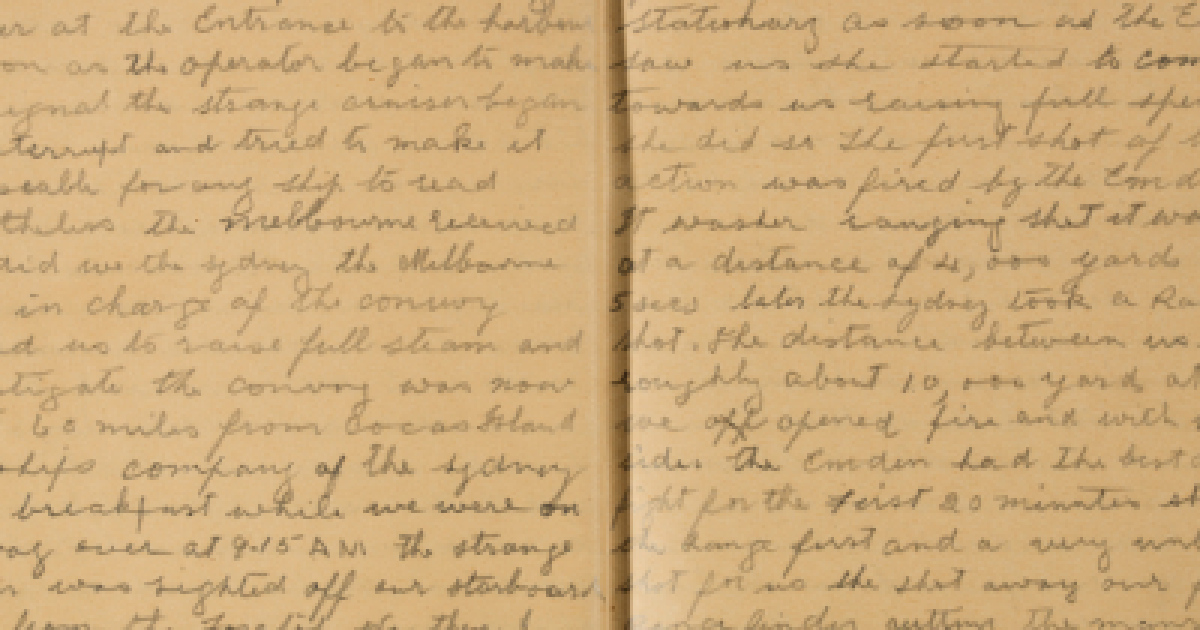 er at the Entrance to the harbour
on as the operator began to mak
ignal the strange cruiser began
terrupt and tried to make it
eable for any ship to read
theless the Melbourne received
did we the Sydney the Melbourne
in charge of the convoy
d us to raise full steam and
stigate the convoy was now
60 miles from Cocas Island
ships company of the Sydney
breakfast while we were on
way over at 9.15 A M the strange
r was sighted off our starboard
the
stationary as soon as the E
saw us she started to com
towards us raising full spe
she did so the first shot of
action was fired by the Emd
It was her ranging shot it wa
at a distance of 000 yards
5 secs later the Sydney took a Ra
shot. The distance between us
roughly about 10,000 yards at
we opened fire and with
sides the Emden had the best o
fight for the first 20 minutes
the Range first and a very unl
shot for us the shot away our
range finder cutting the